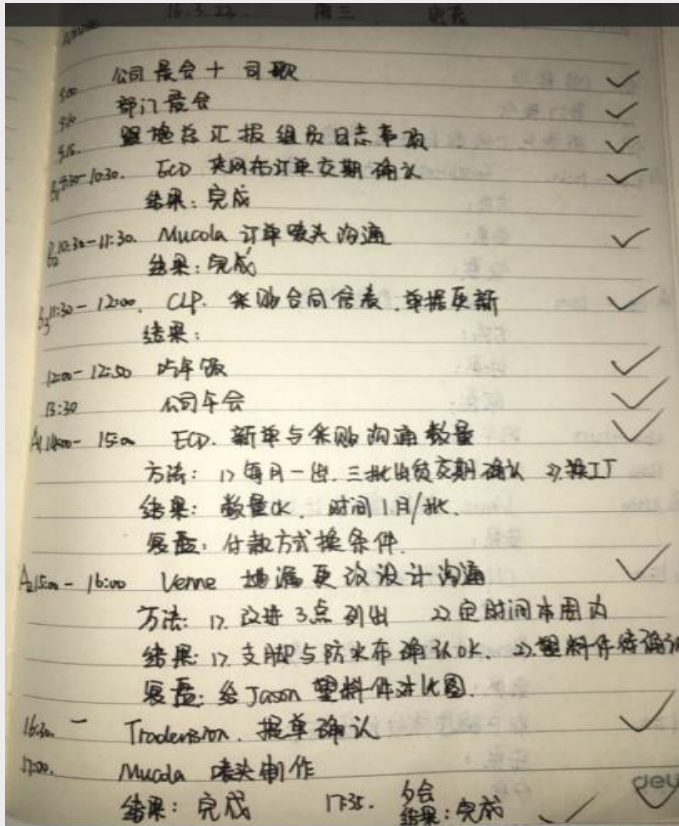 16.3.23. 周三
9:00 公司晨会十司歌
9:10 部门晨会
9:15. 盟地总汇报组员日志事项
B₁9:30-10:30. ECD 夹网布订单交期确认
结果:完成
B₂10:30-11:30. Mucola 订单唛头沟通
结果:完成
B₃11:30-12:00. CLP. 采购合同信表.单据更新
结果:
12:00-12:50 吃午饭
13:30 公司午会
A₁14:00-15:00 ECD. 新单与采购沟通数量
方法:1>每月一出.三批出货交期确认 2>换工厂
结果:数量OK. 时间1月/批.
复盘:付款方式换条件.
A₂15:00-16:00 Venne 地漏更改设计沟通
方法:1>.改进3点列出 2>定时间本周内
结果:1>支脚与防水布确认OK. 2>.塑料件待确认
复盘:给Jason塑料件对比图.
16:30. - Tradension. 报单确认
17:00. Mucola 唛头制作
结果:完成 17:35. 夕会
结果:完成
deli